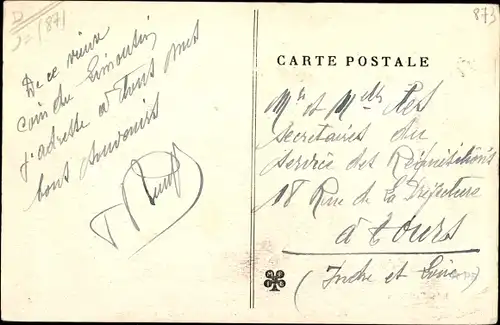 D
J=(87)
873
De ce vieux
coin du Limousin,
j'adresse à tous mes
bons souvenirs
CARTE POSTALE
Mrs et Melles les
Secrétaires du
Service des Réquisitions
18 Rue de la Préfecture
à Tours
(Indre et Loire)